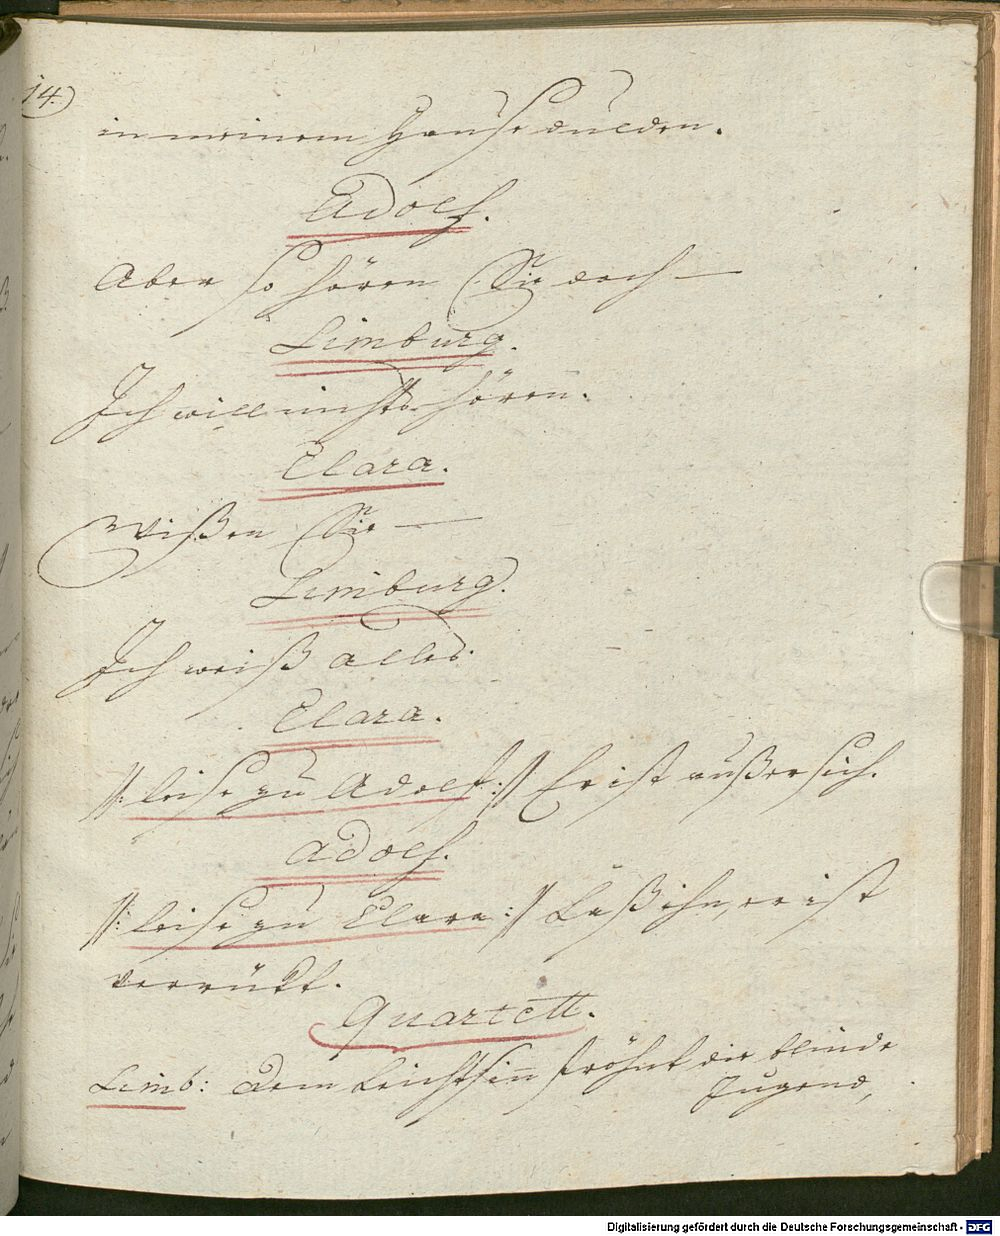 14.)
in meinem Hause dulden.
Adolf.
Aber so hören Sie doch —
Limburg.
Ich will nichts hören.
Clara.
Wißen Sie —
Limburg.
Ich weiß alles.
Clara.
//: leise zu Adolf ://  Er ist außer sich.
Adolf.
//: leise zu Clara ://  Laß ihn, er ist
verrükt.
Quartett.
Limb: Dem Leichtsinn fröhnt die blinde
Jugend,
Digitalisierung gefördert durch die Deutsche Forschungsgemeinschaft - DFG